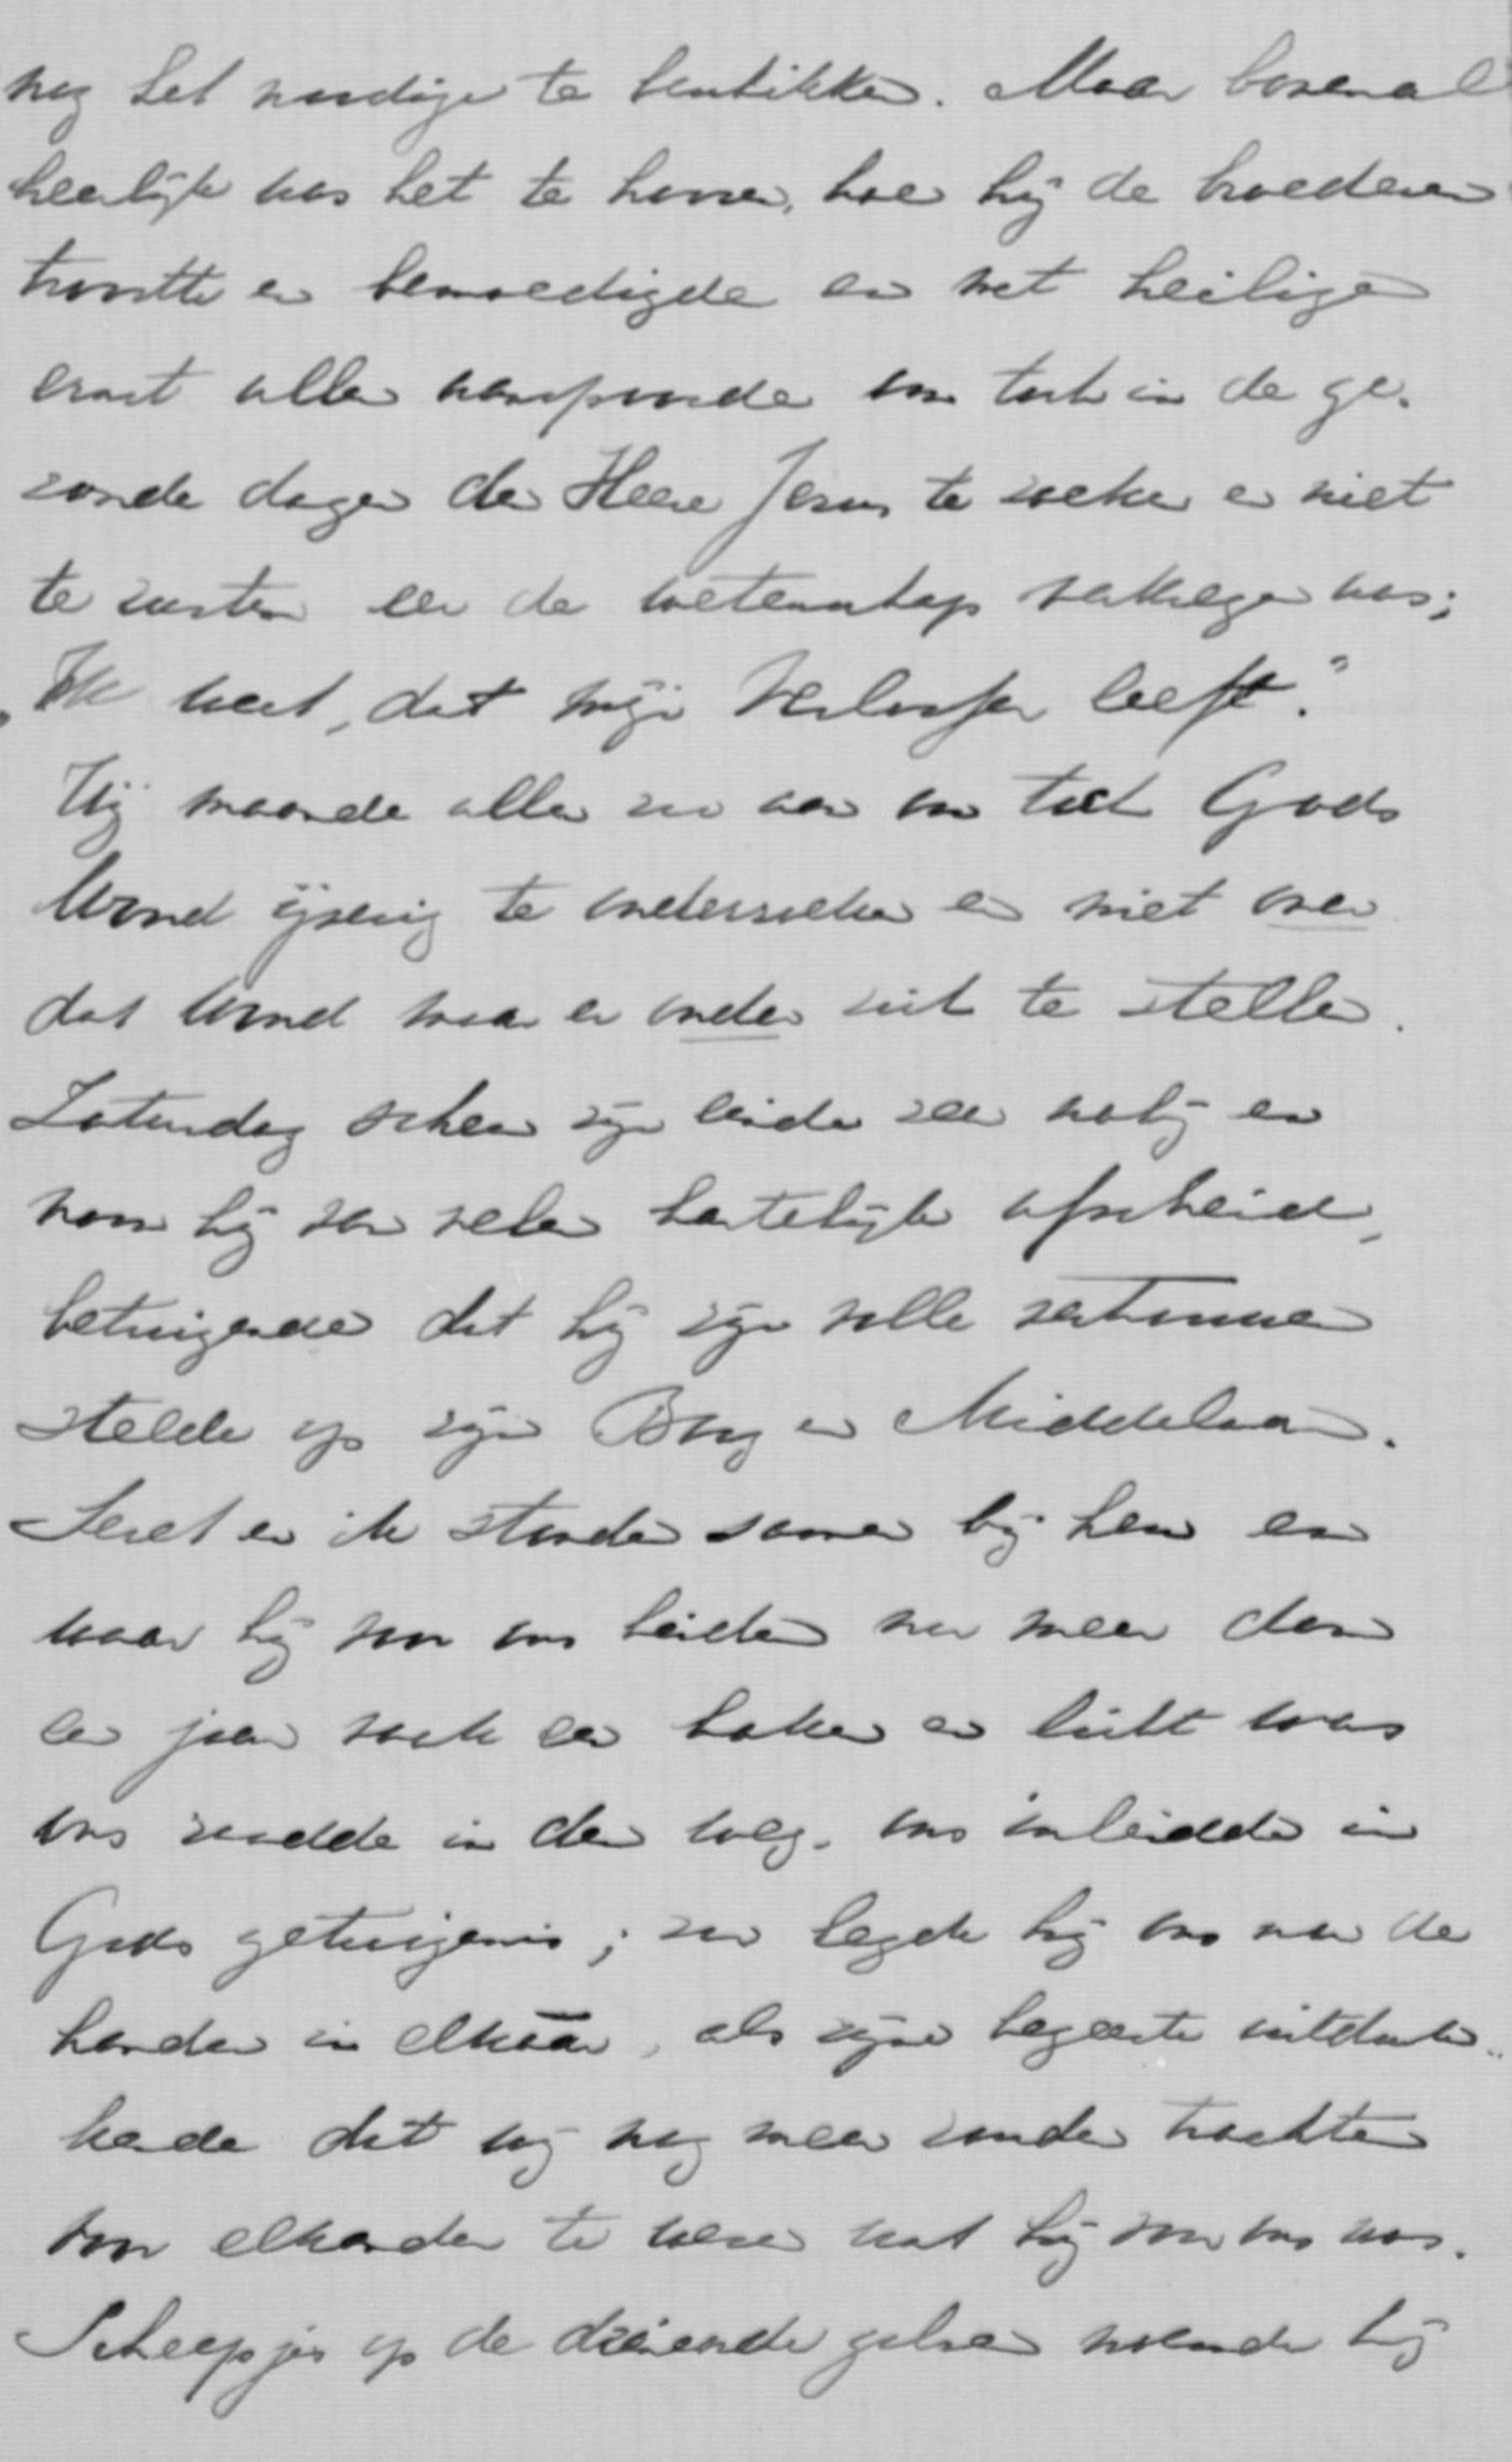 nog het noodige te beschikken. Maar bovenal
heerlijk was het te hooren, hoe hij de broederen
troostte en bemoedigde en met heiligen
ernst allen aanspoorde om toch in de ge-
zonde dagen den Heere Jesus te zoeken en niet
te rusten eer de wetenschap verkregen was;
„Ik weet, dat mijn Verlosser leeft."
Hij maande allen zoo aan om toch Gods
Woord ijverig te onderzoeken en niet over
dat Woord maar er onder zich te stellen.
Zaturdag scheen zijn einde zeer nabij en
nam hij van velen hartelijk afscheid,
betuigende dat hij zijn volle vertrouwen
stelde op zijn Borg en Middelaar.
en ik stonden samen bij hem en
waar hij voor ons beiden nu meer dan
een jaar vaak een baken en licht was
ons raadde in den weg, ons inleidde in
Gods getuigenis; zoo legde hij ons nu de
handen in elkaar, als zijne begeerte uitdruk-
kende dat wij nog meer zouden trachten
voor elkander te wezen wat hij voor ons was.
Scheepjes op de deinende golven noemde hij